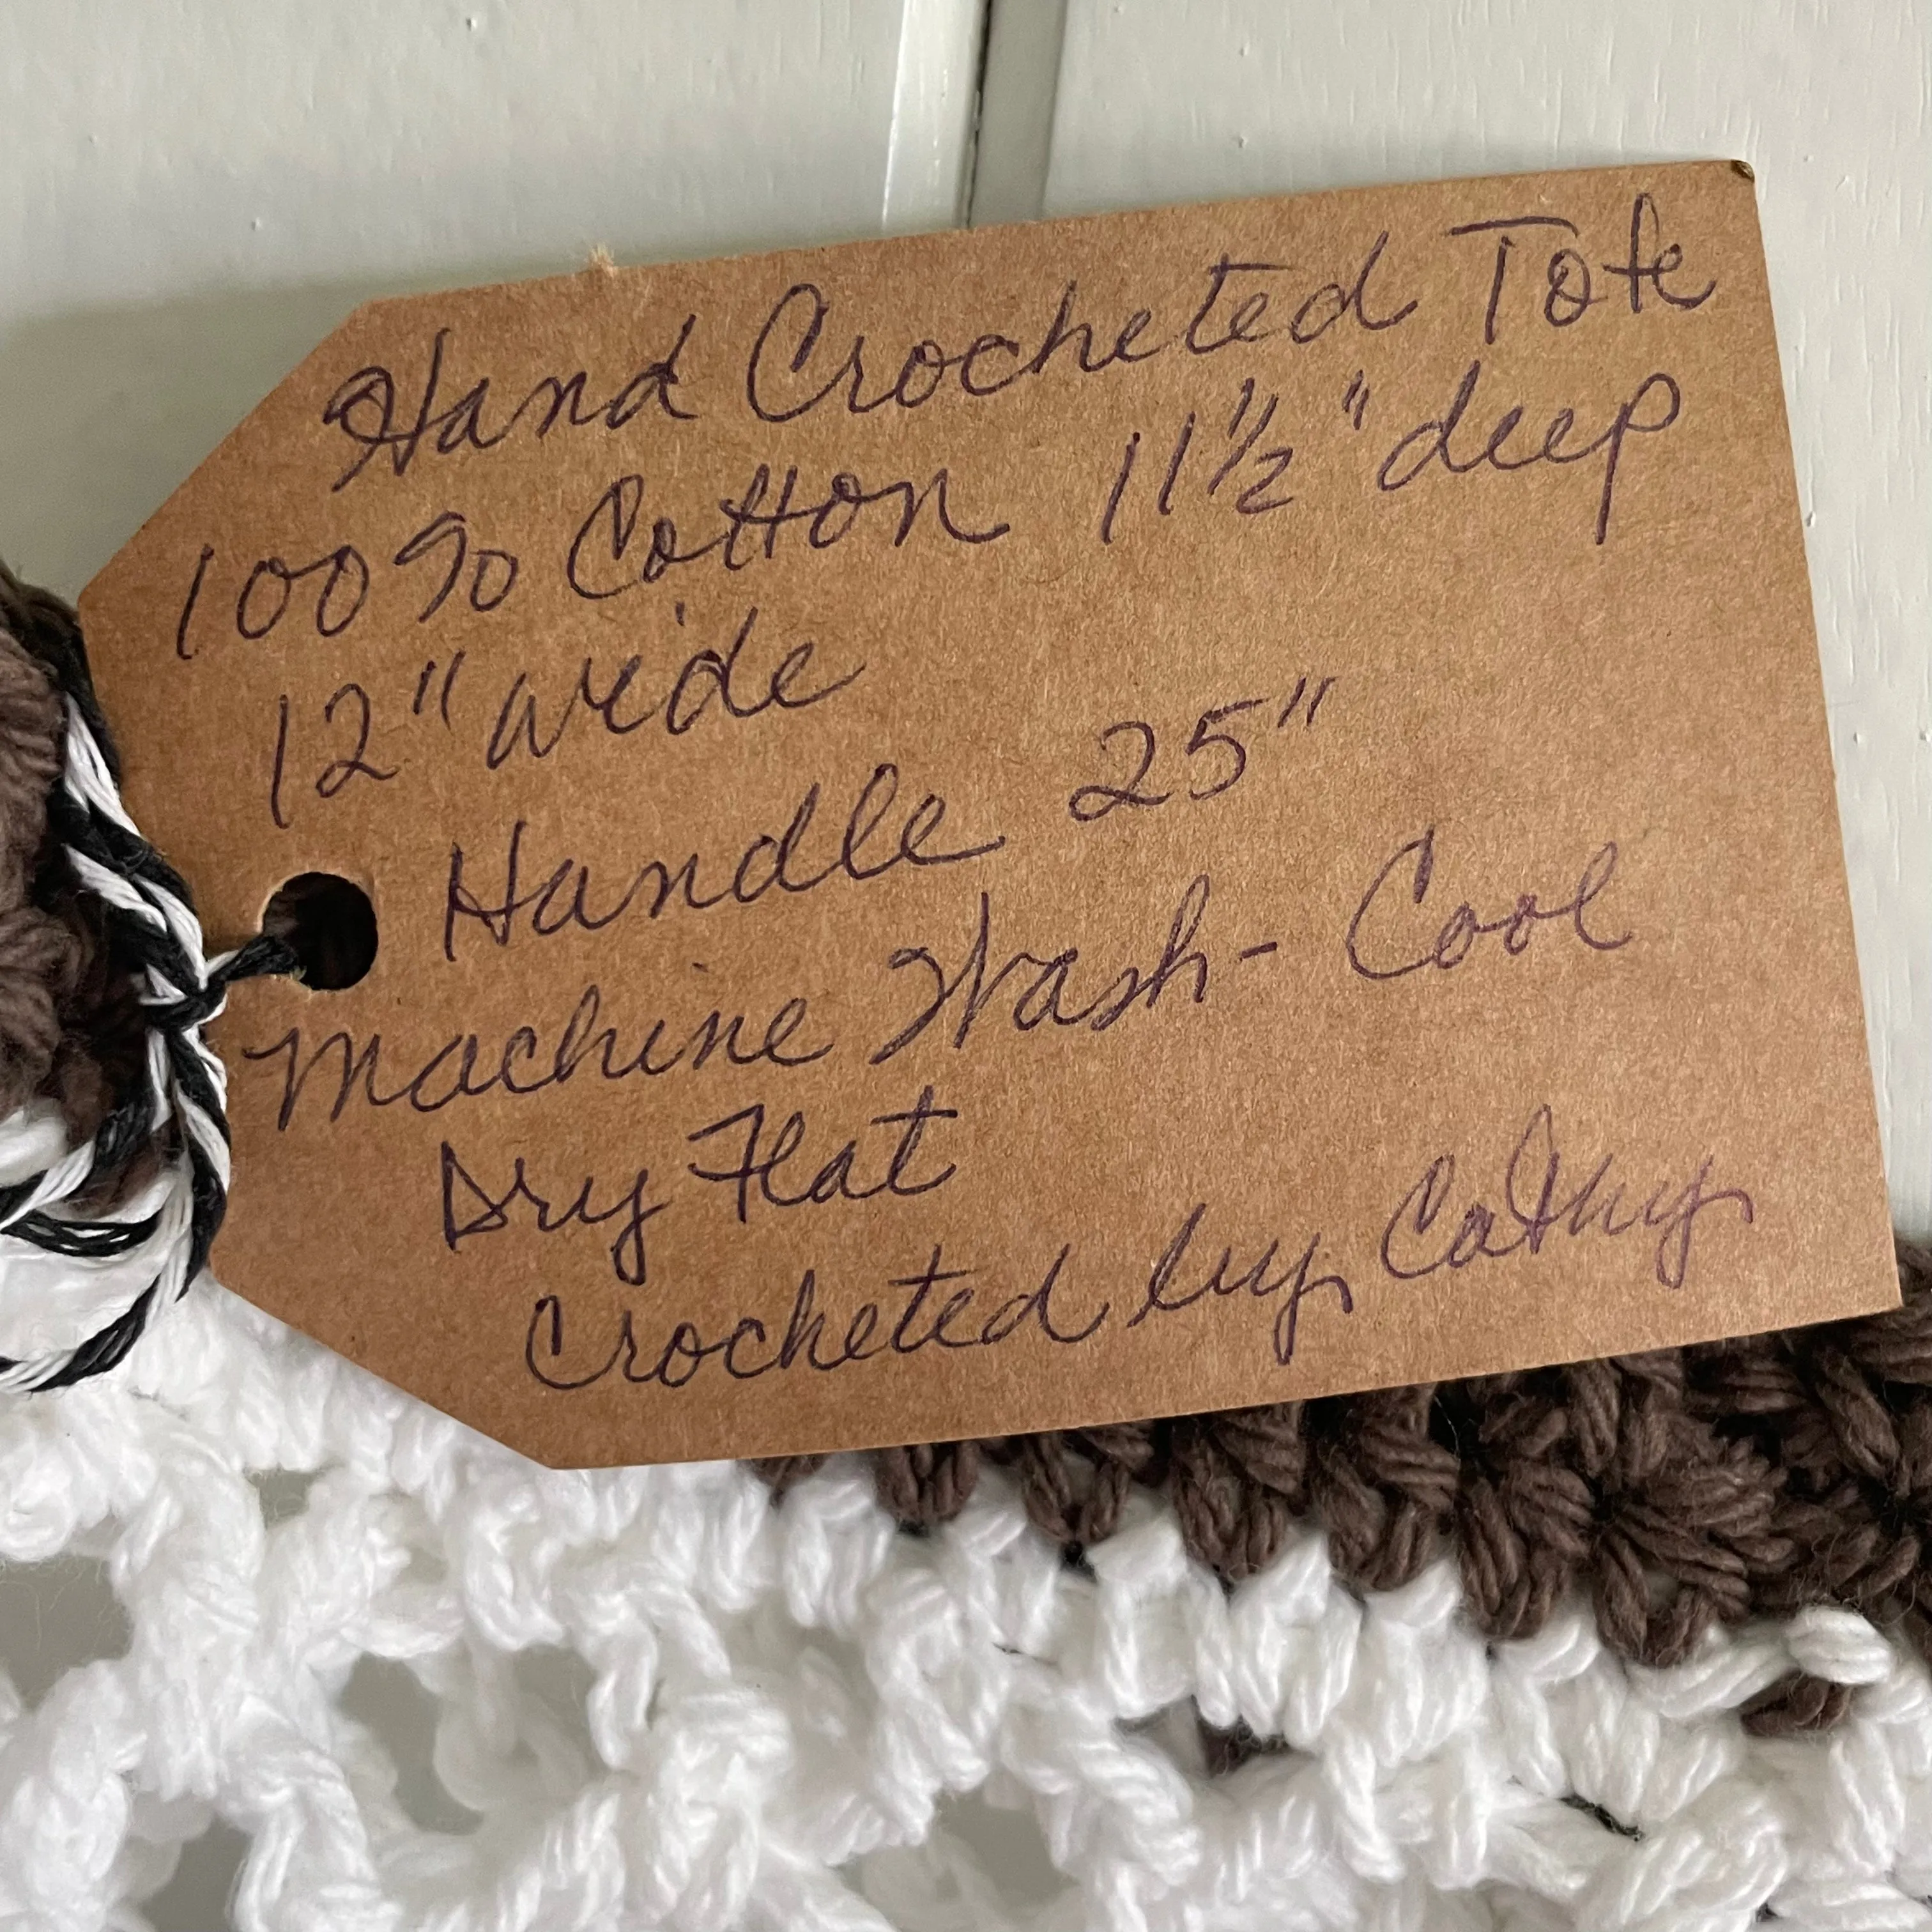 Hand Crocheted Tote
100% Cotton 11 1/2" deep
12" wide
Handle 25"
Machine Wash - Cool
Dry Flat
Crocheted by Cathy